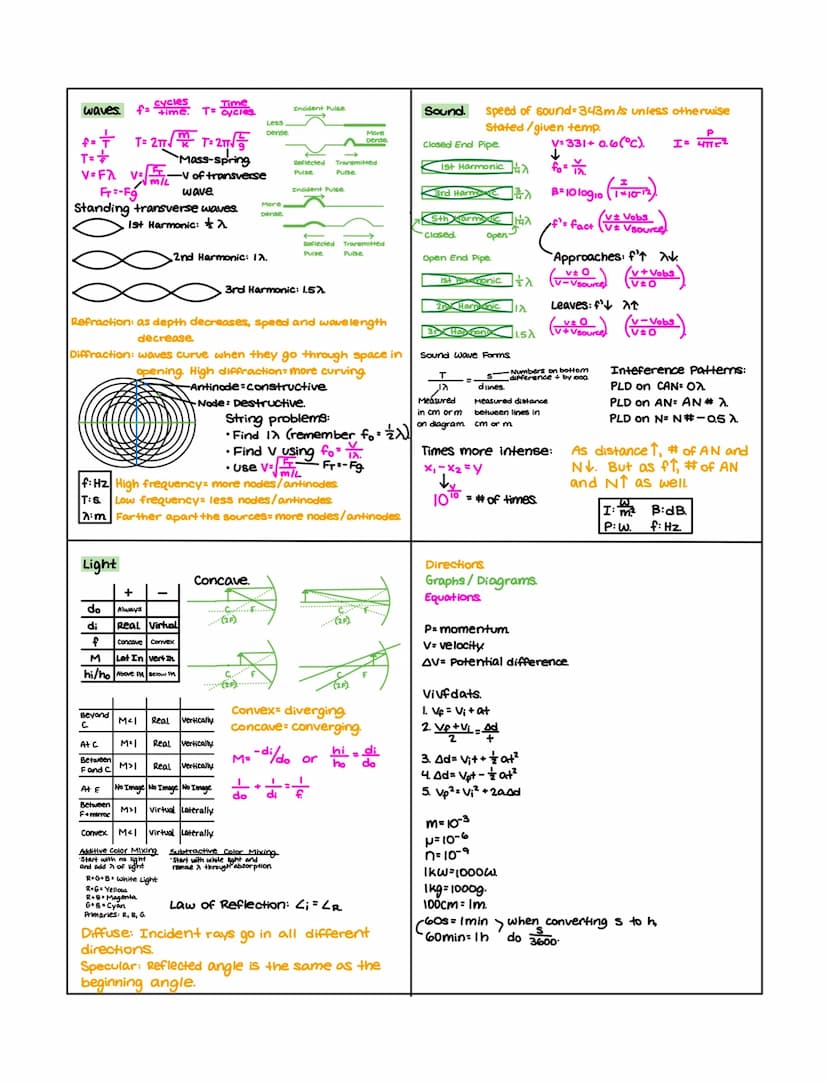 Waves.
f= cycles/time. T= Time/cycles.
f= 1/T T= 2π√m/k T= 2π√L/g
T= 1/f Mass-spring.
V= Fλ V= √FT/m/L V of transverse
FT=-Fg wave.
Standing transverse waves.
1st Harmonic: ½ λ
2nd Harmonic: 1λ.
3rd Harmonic: 1.5λ
Incident Pulse.
Less Dense.
More Dense.
Reflected Pulse.
Transmitted Pulse.
Incident Pulse.
More Dense.
Reflected Pulse.
Transmitted Pulse.
Refraction: as depth decreases, speed and wavelength
decrease.
Diffraction: waves curve when they go through space in
opening. High diffraction= more curving.
Antinode= constructive.
Node= Destructive.
String problems:
• Find 1λ (remember f₀= ½λ)
• Find V using f₀= V/1λ.
• use V=√FT/m/L FT=-Fg.
f: Hz. High frequency= more nodes/antinodes.
T: s. Low frequency= less nodes/antinodes.
λ: m. Farther apart the sources= more nodes/antinodes.
Sound.
speed of sound= 343m/s unless otherwise
stated/given temp.
Closed End Pipe.
1st Harmonic. ¼λ
3rd Harmonic. ¾λ
5th Harmonic.
Closed. Open
Open End Pipe.
1st Harmonic ½λ
2nd Harmonic 1λ
3rd Harmonic. 1.5λ
V= 331+ 0.6(°C). I= P/4πr²
f₀= V/1λ
B= 10log₁₀ (I/1×10⁻¹²)
f'= fact (V± Vobs/V± Vsource)
Approaches: f'↑ λ↓.
(V± 0/V-Vsource) (V+Vobs/V±0)
Leaves: f'↓ λ↑
(V± 0/V+Vsource) (V-Vobs/V±0)
Sound Wave Forms.
T/1λ = s/d lines.
Numbers on bottom
difference ÷ by 1000.
Measured
in cm or m
on diagram.
Measured distance
between lines in
cm or m.
Inteference Patterns:
PLD on CAN= 0λ
PLD on AN= AN # λ
PLD on N= N# -0.5 λ
Times more intense:
x₁-x₂= y
10^y/10 = # of times.
As distance↑, # of AN and
N↓. But as f↑, # of AN
and N↑ as well.
I: W/m² B: dB.
P: W. f: Hz
Light
+ -
do Always
di Real Virtual
f Concave Convex
M Lat In Vert In
hi/ho
Concave.
C (2F) F
C (2F) F
C (2F) F
C (2F) F
Beyond C. M<1 Real Vertically
At C M=1 Real Vertically
Between F and C. M>1 Real Vertically
At F No Image No Image No Image
Between F+mirror M>1 Virtual Laterally
Convex M<1 Virtual Laterally
Convex= diverging.
concave= converging.
M= -di/do or hi/ho = di/do
1/do + 1/di = 1/f
Additive Color Mixing
*Start with no light
and add λ of light
R+G+B= White Light
R+G= Yellow
R+B= Magenta
G+B= Cyan
Primaries: R, B, G.
Subtractive Color Mixing
*Start with white light and
remove λ through absorption
Law of Reflection: ∠i = ∠R
Diffuse: Incident rays go in all different
directions.
Specular: Reflected angle is the same as the
beginning angle.
Directions.
Graphs/Diagrams.
Equations.
P= momentum.
V= velocity.
ΔV= Potential difference.
Vivfdats.
1. Vf = Vi + at
2. Vf+Vi/2 = Δd/t
3. Δd= Vit + ½at²
4. Δd= Vft - ½at²
5. Vf²= Vi² + 2aΔd
m= 10⁻³
μ= 10⁻⁶
n= 10⁻⁹
1kW= 1000W.
1kg= 1000g.
100cm= 1m.
60s= 1min when converting s to h,
60min= 1h do s/3600.